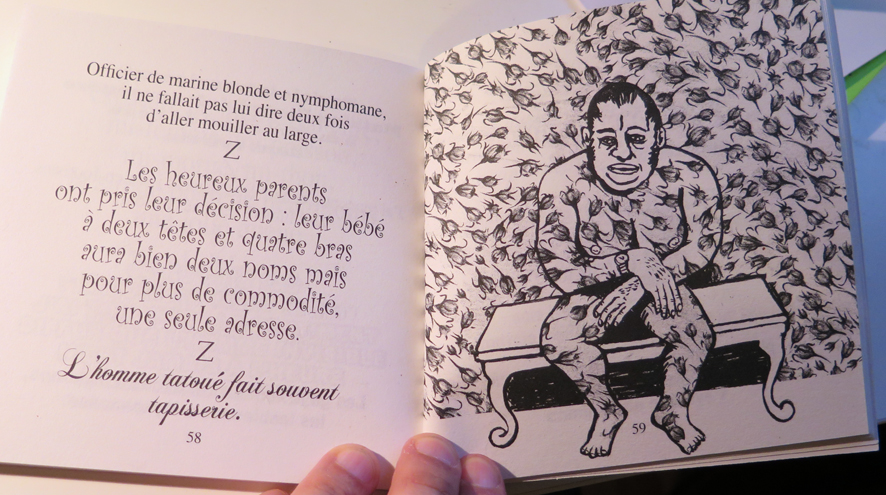 Officier de marine blonde et nymphomane,
il ne fallait pas lui dire deux fois
d'aller mouiller au large.
Z
Les heureux parents
ont pris leur décision : leur bébé
à deux têtes et quatre bras
aura bien deux noms mais
pour plus de commodité,
une seule adresse.
Z
L'homme tatoué fait souvent
tapisserie.
58
59